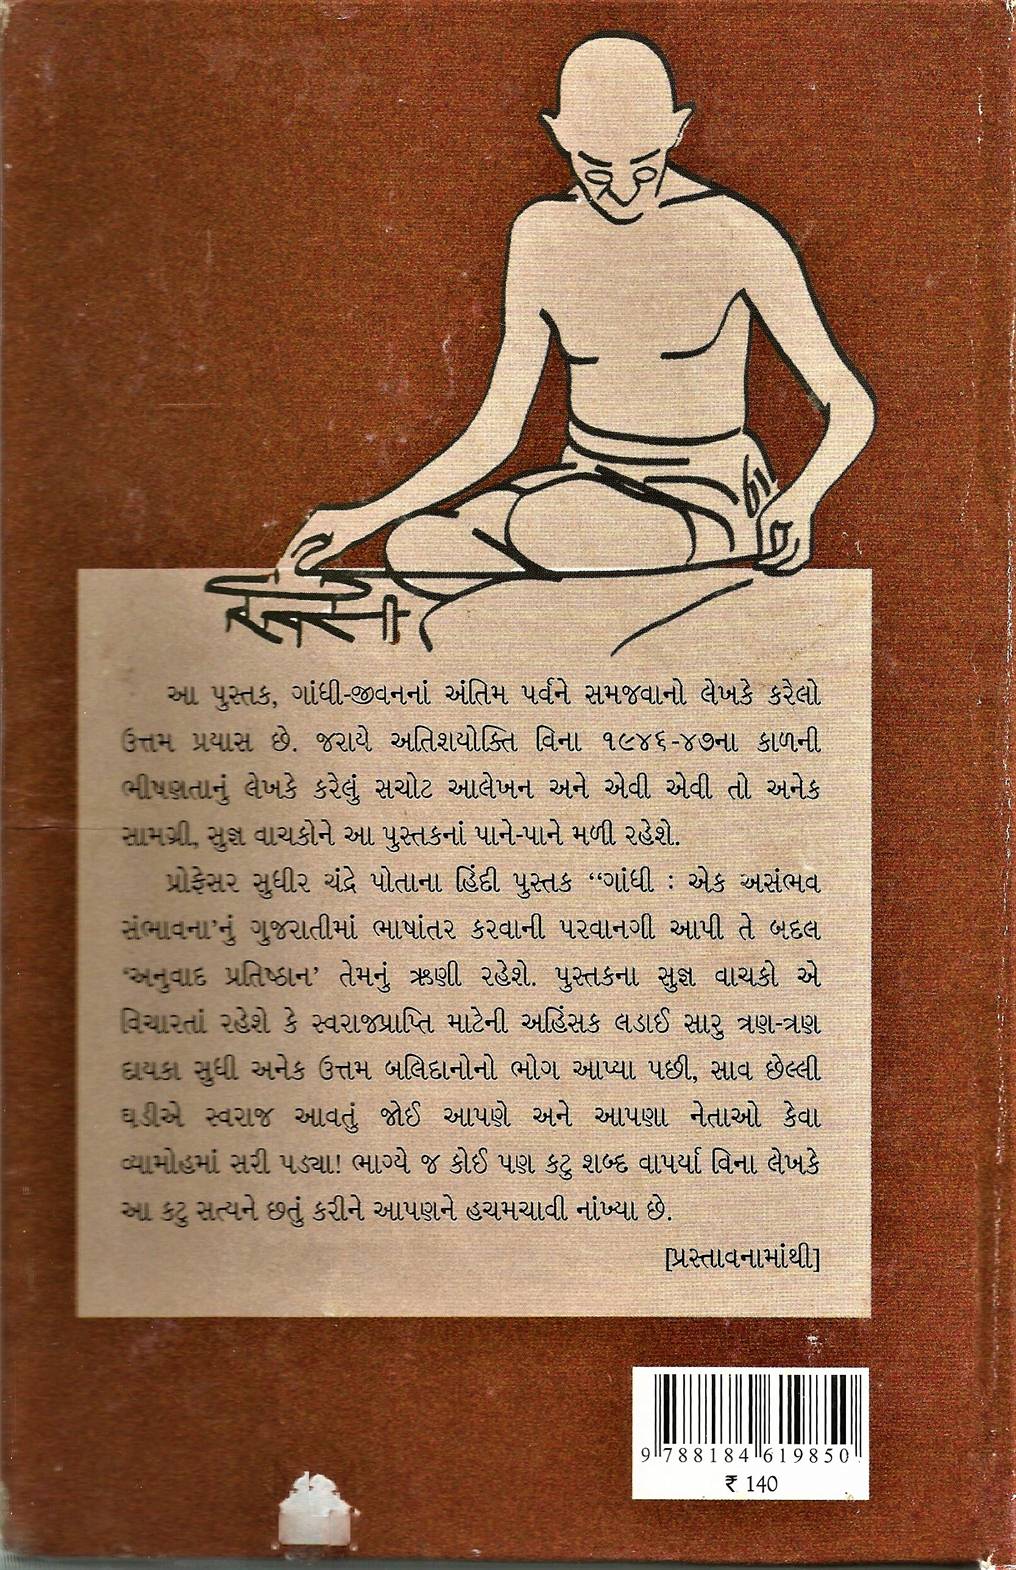 આ પુસ્તક, ગાંધી-જીવનનાં અંતિમ પર્વને સમજવાનો લેખકે કરેલો
ઉત્તમ પ્રયાસ છે. જરાયે અતિશયોક્તિ વિના ૧૯૪૬-૪૭ના કાળની
ભીષણતાનું લેખકે કરેલું સચોટ આલેખન અને એવી એવી તો અનેક
સામગ્રી, સુજ્ઞ વાચકોને આ પુસ્તકનાં પાને-પાને મળી રહેશે.
પ્રોફેસર સુધીર ચંદ્રે પોતાના હિંદી પુસ્તક “ગાંધી : એક અસંભવ
સંભાવના’નું ગુજરાતીમાં ભાષાંતર કરવાની પરવાનગી આપી તે બદલ
‘અનુવાદ પ્રતિષ્ઠાન’ તેમનું ઋણી રહેશે. પુસ્તકના સુજ્ઞ વાચકો એ
વિચારતાં રહેશે કે સ્વરાજપ્રાપ્તિ માટેની અહિંસક લડાઈ સારુ ત્રણ-ત્રણ
દાયકા સુધી અનેક ઉત્તમ બલિદાનોનો ભોગ આપ્યા પછી, સાવ છેલ્લી
ઘડીએ સ્વરાજ આવતું જોઈ આપણે અને આપણા નેતાઓ કેવા
વ્યામોહમાં સરી પડ્યા! ભાગ્યે જ કોઈ પણ કટુ શબ્દ વાપર્યા વિના લેખકે
આ કટુ સત્યને છતું કરીને આપણને હચમચાવી નાંખ્યા છે.
[પ્રસ્તાવનામાંથી]
9 788184 619850
₹ 140